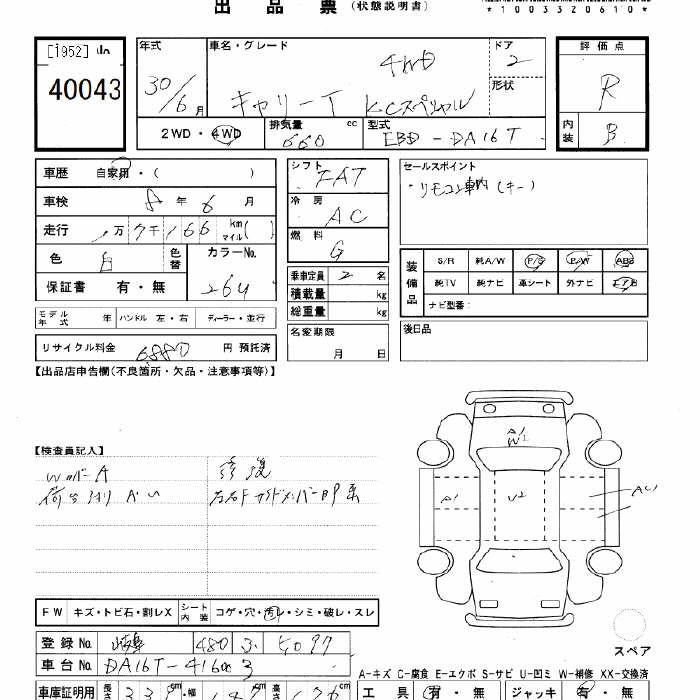 出品票 (状態説明書)
*1003320610*
[1952]
40043
年式 30/6月
車名・グレード キャリーT KCスペシャル 4WD
ドア 2
形状
評価点 R
内装 B
2WD・4WD
排気量 660 cc
型式 EBD-DA16T
車歴 自家用・( )
車検 8年6月
走行 1万7千166 km マイル( )
色 白 色替
カラーNo. 26U
保証書 有・無
シフト FAT
冷房 AC
燃料 G
乗車定員 2名
積載量 kg
総重量 kg
名変期限 月 日
セールスポイント
・リモコン車内(キー)
装備品
S/R 純A/W P/S P/W ABS
純TV 純ナビ 革シート 外ナビ エアB
ナビ型番:
後日品
モデル年式 年 ハンドル 左・右 ディーラー・並行
リサイクル料金 6,880 円 預託済
【出品店申告欄(不良箇所・欠品・注意事項等)】
【検査員記入】
WカバーA 修復
荷台
A1 W1
A1 U2 AU1
スペア
FW キズ・トビ石・割レX シート内装 コゲ・穴・汚レ・シミ・破レ・スレ
登録No. 岐阜 480 5099
車台No. DA16T-416003
A-キズ C-腐食 E-エクボ S-サビ U-凹ミ W-補修 XX-交換済
車庫証明用 長さ cm・幅 cm 高さ
工具 有・無 ジャッキ 有・無